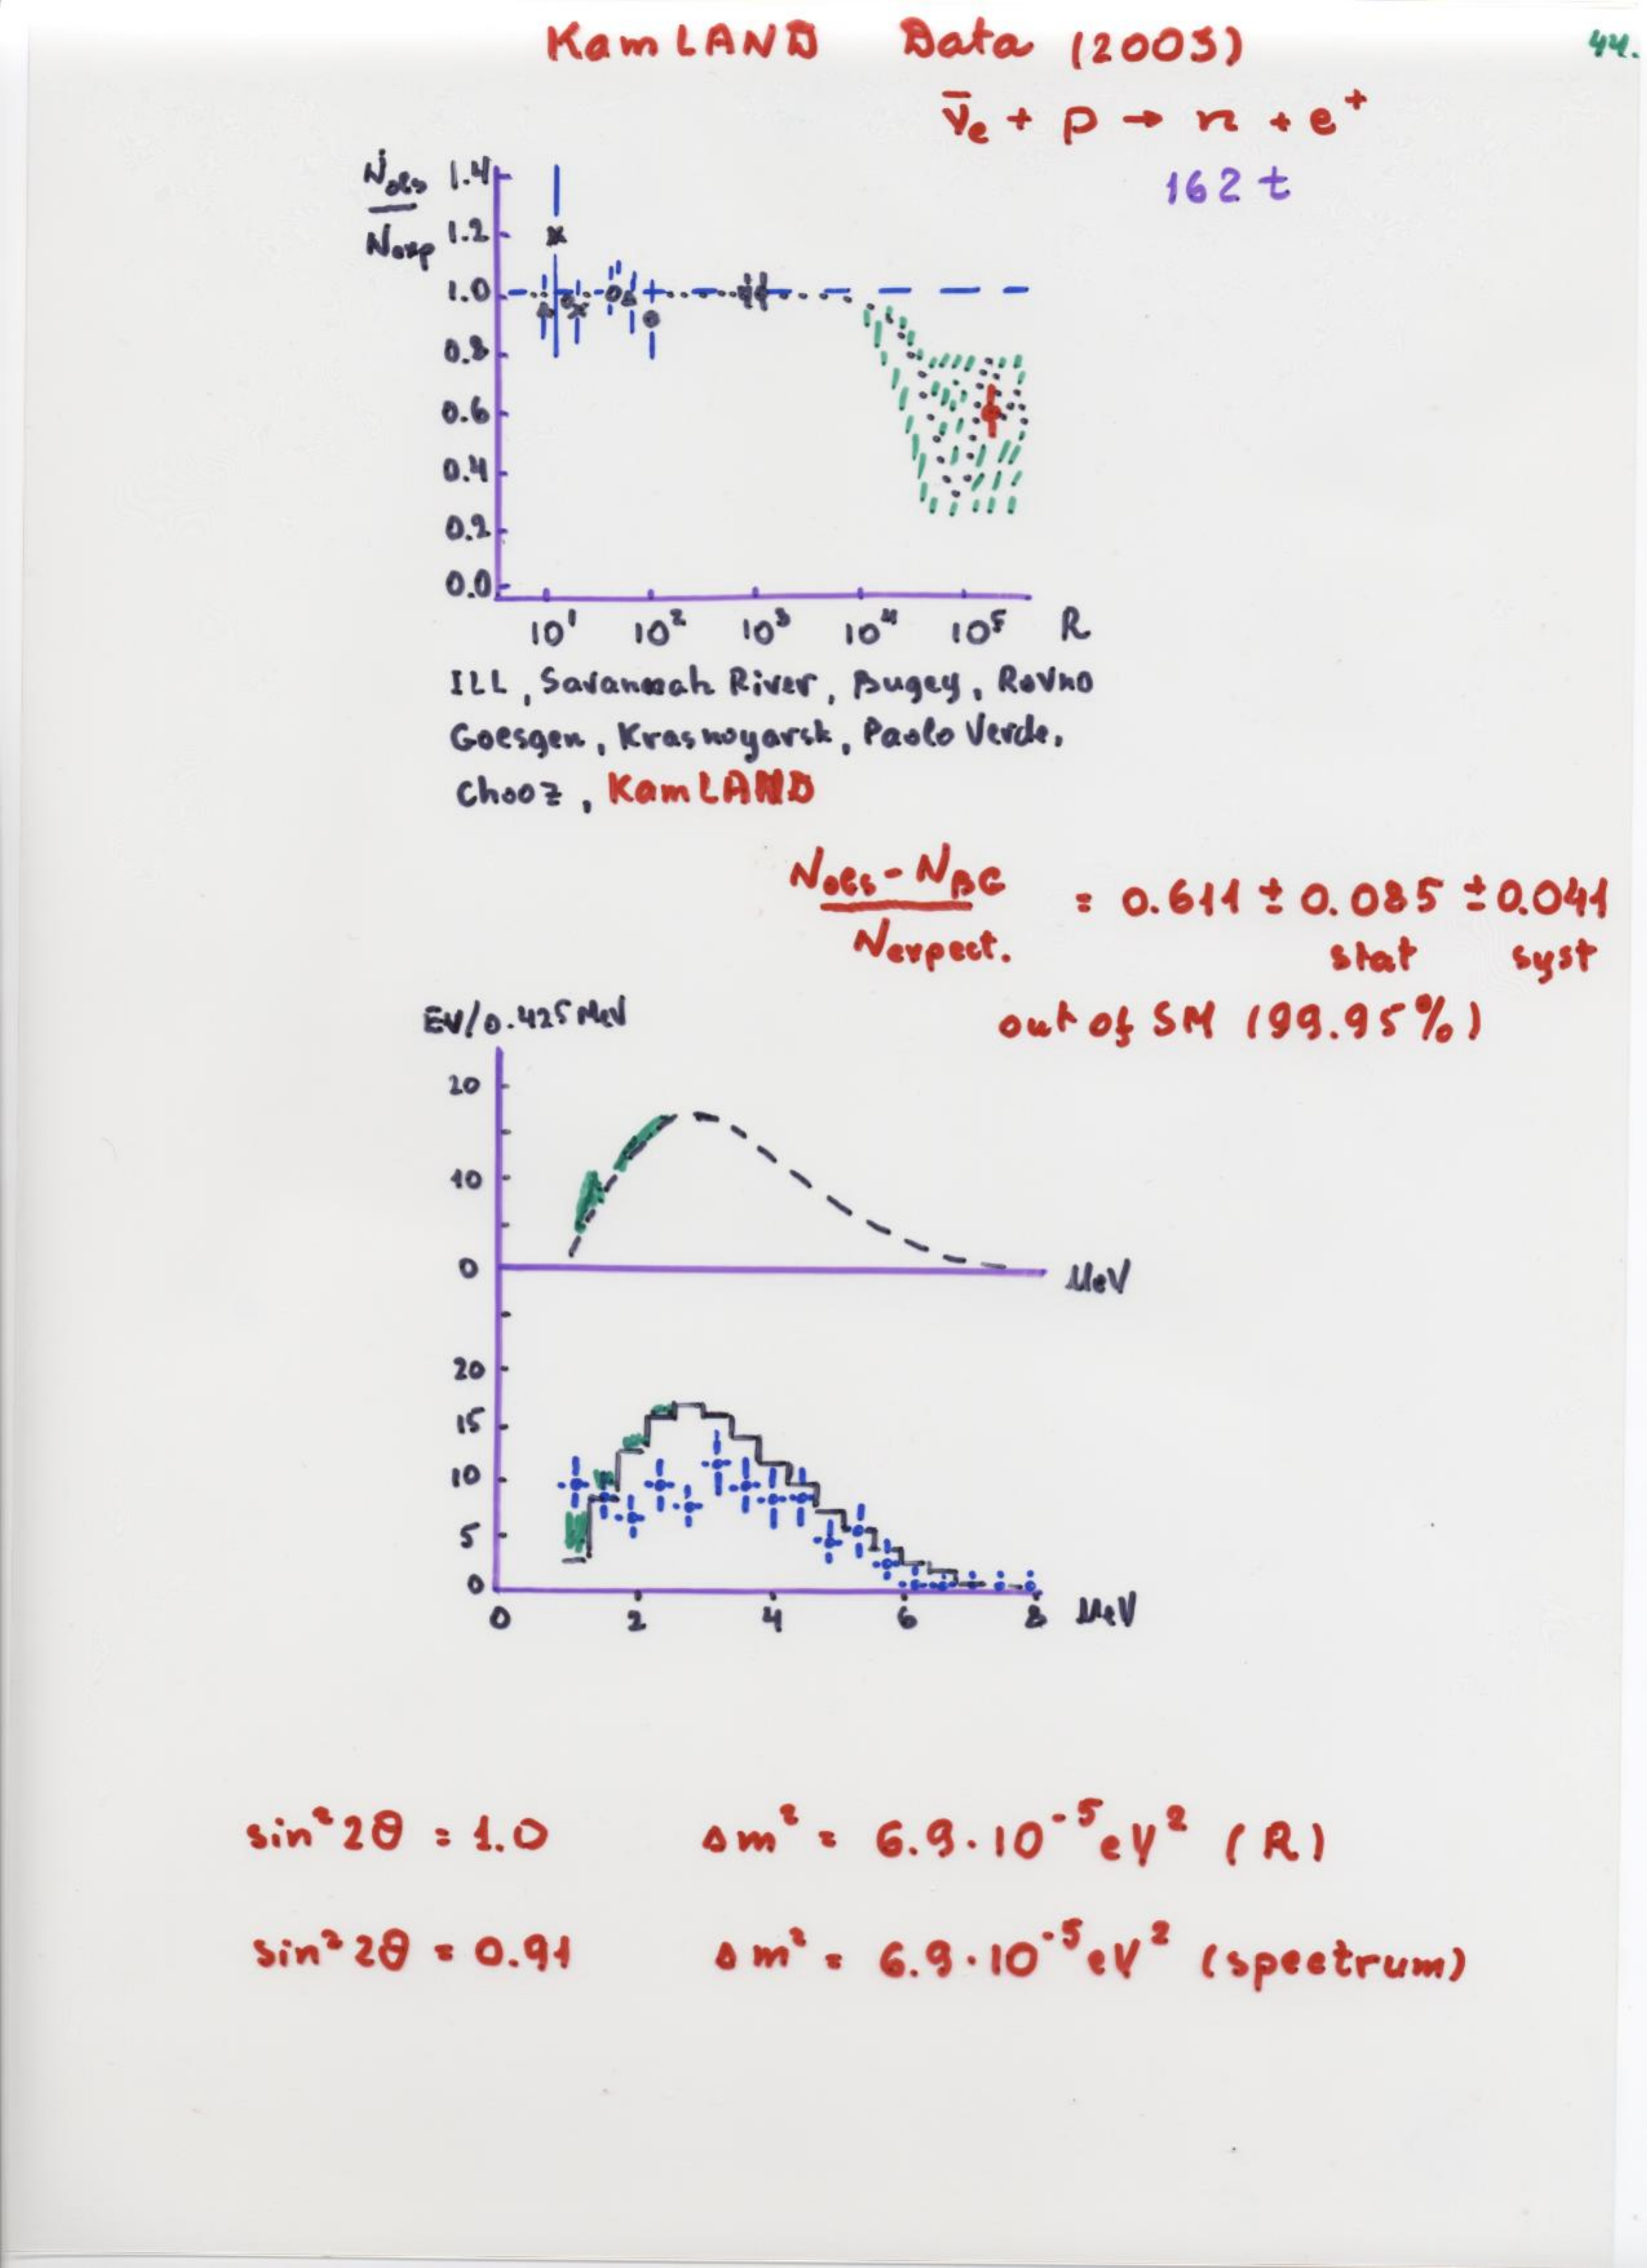 KamLAND Data (2003)
44.
ν̄e + p → n + e⁺
162 t
Nobs
Nexp
1.4
1.2
1.0
0.8
0.6
0.4
0.2
0.0
10¹ 10² 10³ 10⁴ 10⁵ R
ILL, Savannah River, Bugey, Rovno
Goesgen, Krasnoyarsk, Paolo Verde,
Chooz, KamLAND
Nobs - NBG
Nexpect.
= 0.611 ± 0.085 ± 0.041
stat syst
out of SM (99.95%)
EV/0.425 MeV
20
10
0
MeV
20
15
10
5
0
0 2 4 6 8 MeV
sin² 2θ = 1.0 Δm² = 6.9·10⁻⁵ eV² (R)
sin² 2θ = 0.91 Δm² = 6.9·10⁻⁵ eV² (spectrum)